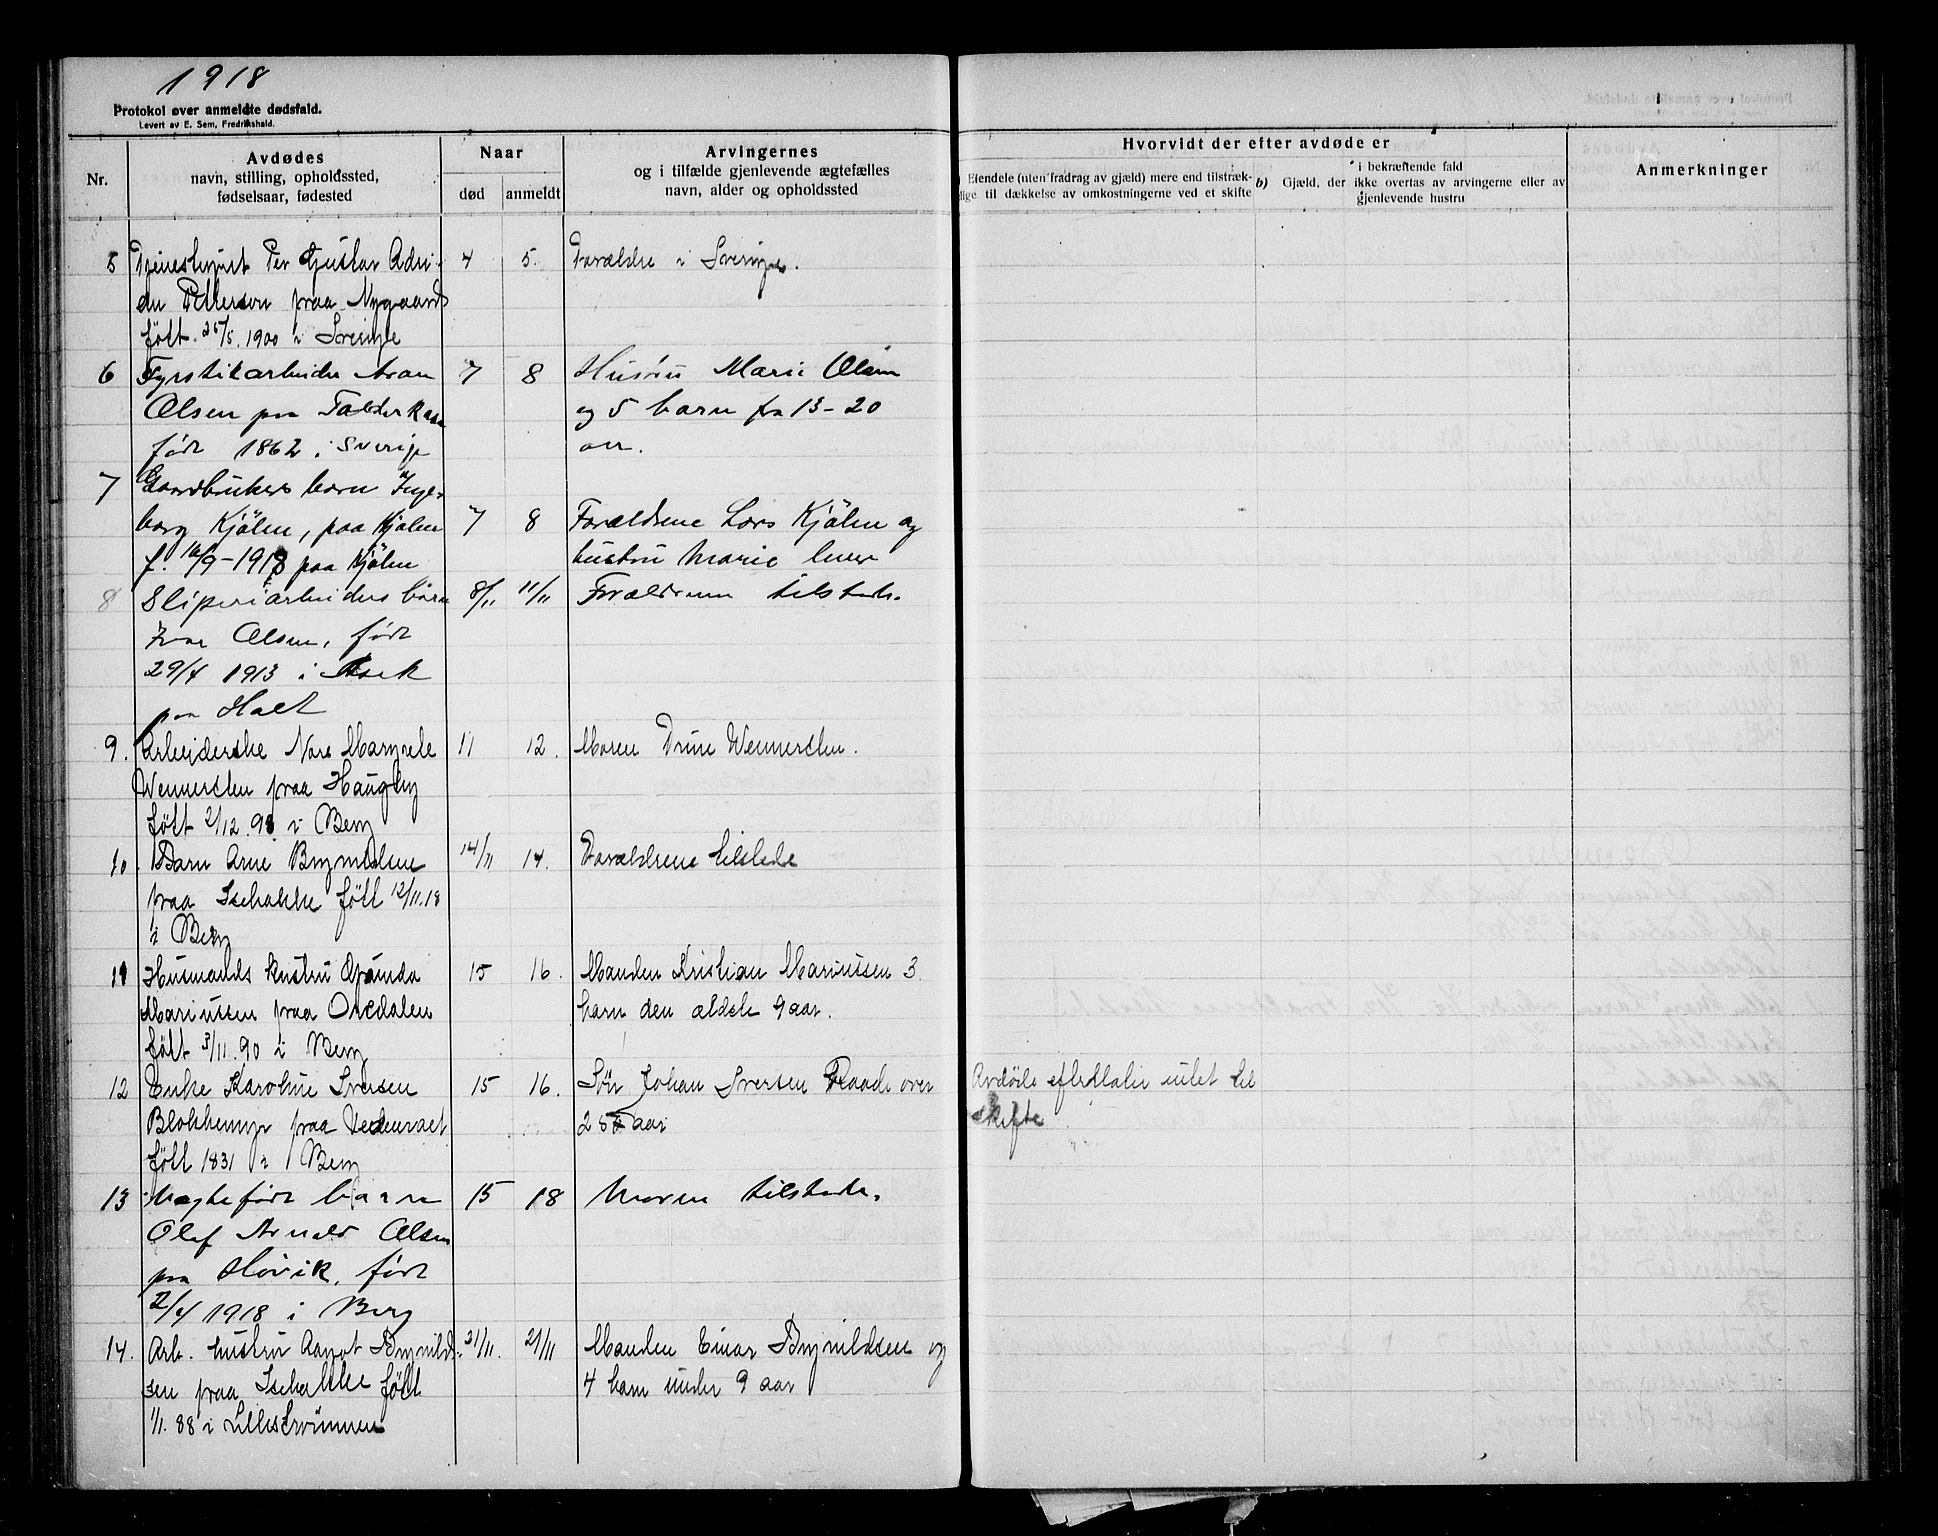 1918
Protokol over anmeldte dødsfald.
Levert av E. Sem, Fredrikshald.
Nr.
Avdødes
navn, stilling, opholdssted,
fødselsaar, fødested
Naar
død
anmeldt
Arvingernes
og i tilfælde gjenlevende ægtefælles
navn, alder og opholdssted
Hvorvidt der efter avdøde er
Eiendele (uten fradrag av gjæld) mere end tilstræk-
lige til dækkelse av omkostningerne ved et skifte
b) Gjæld, der i bekræftende fald
ikke overtas av arvingerne eller av
gjenlevende hustru
Anmerkninger
5 Per Gustav 4 5. Forældre i Sverige.
Petterson paa Nygaard
født 1900 i Sverige
6 Fyrstikarbeider 7 8 Hustru Marie Olsen
Olsen paa og 5 barn fra 13-20
født 1862 i Sverige aar.
7 Gaardbrukers barn Inge-
borg Kjølen, paa Kjølen 7 8 Forældrene Lars Kjølen og
f. 16/9-1918 paa Kjølen hustru Marie lever
8 Sliperiarbeiders barn 8/11 11/11 Forældrene tilstede.
Olsen, født
29/4 1913 i Ask
paa
9. Arbeiderske Margrete 11 12. Moren Wennersten.
Wennersten paa Haugby
født 2/12. i Berg
10. Barn Arne Brynildsen 14/11 14. Forældrene tilstede
paa Isebakke født 12/11.18
i Berg
11 Husmands hustru 15 16. Manden Kristian Mariussen 3
Mariussen paa barn den ældste 9 aar.
født 3/11.90 i Berg
12 Enke Karoline Iversen 15 16. Søn Johan Iversen over Avdøde efterlater intet til
paa 25 aar skifte
født 1831 i Berg
13 barn 15 18 Moren tilstede.
Olaf Arnold Olsen
paa Høvik, født
2/4 1918 i Berg
14. Arb. hustru Brynild- 21/11. 21/11 Manden Einar Brynildsen og
sen paa Isebakke født 4 barn under 9 aar
1/1.88 i Lillestrømmen